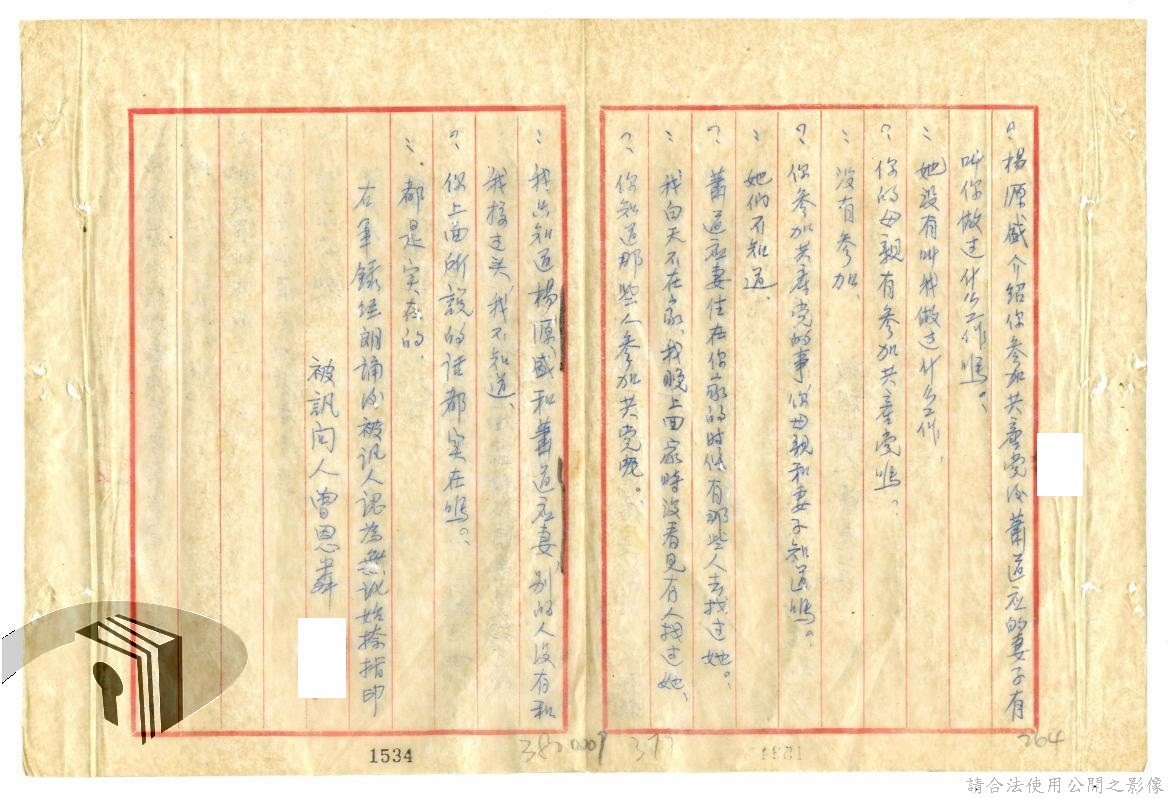 ？楊源盛介紹你參加共產党後蕭道应的妻子有
叫你做过什么工作嗎。
：她没有叫我做过什么工作、
？你的母親有參加共產党嗎。
：没有參加、
？你參加共產党的事你母親和妻子知道嗎。
：她們不知道、
？蕭道应妻住在你家的时候有那些人去找过她。
：我白天不在家、我晚上回家時没看見有人找过她、
？你知道那些人參加共党呢。
：我只知道楊源盛和蕭道应妻、别的人没有和
我接过头、我不知道、
？你上面所說的话都实在嗎。
：都是实在的、
右筆錄经朗誦後被訊人認為無訛始捺指印
被訊问人曾恩
264
379
380
0009
1534
請合法使用公開之影像